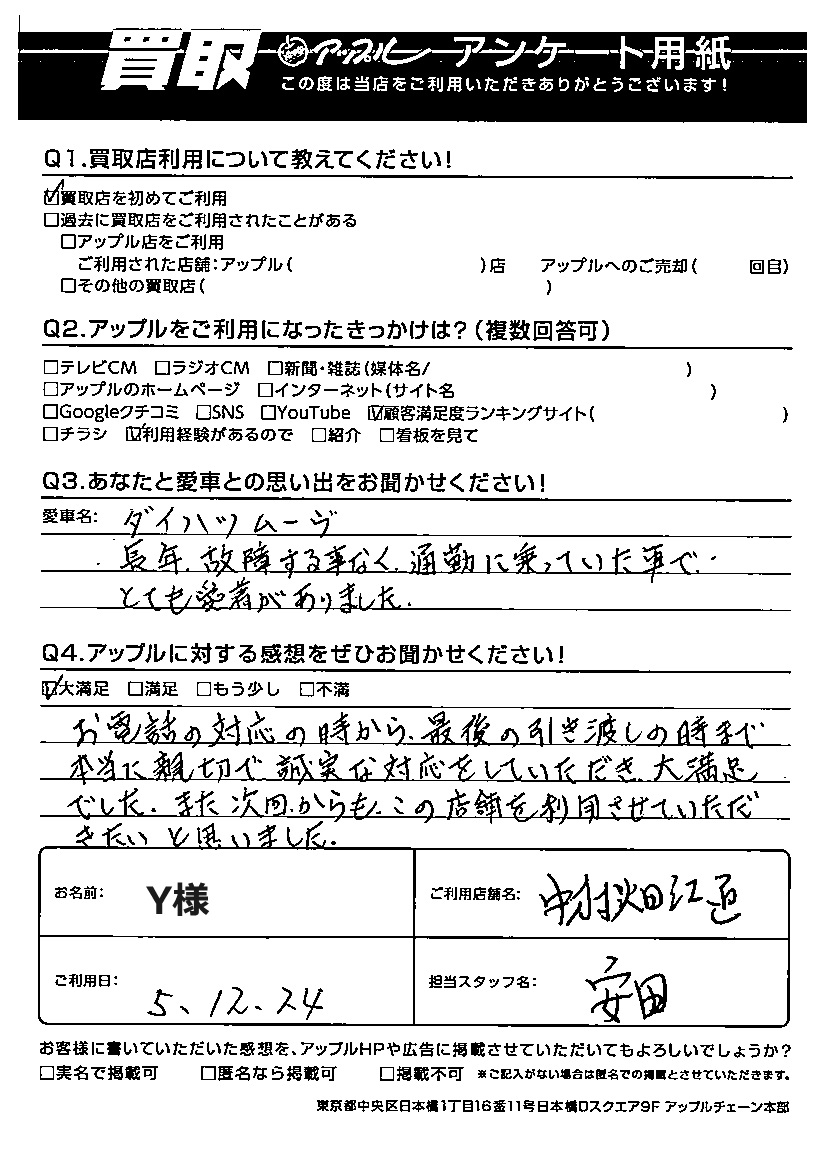 買取 アップル アンケート用紙
この度は当店をご利用いただきありがとうございます!
Q1.買取店利用について教えてください!
☑買取店を初めてご利用
□過去に買取店をご利用されたことがある
□アップル店をご利用
ご利用された店舗:アップル( )店 アップルへのご売却( 回目)
□その他の買取店( )
Q2.アップルをご利用になったきっかけは?(複数回答可)
□テレビCM □ラジオCM □新聞・雑誌(媒体名/ )
□アップルのホームページ □インターネット(サイト名 )
□Googleクチコミ □SNS □YouTube ☑顧客満足度ランキングサイト( )
□チラシ ☑利用経験があるので □紹介 □看板を見て
Q3.あなたと愛車との思い出をお聞かせください!
愛車名: ダイハツムーヴ
長年、故障する事なく、通勤に乗っていた車で、
とても愛着がありました。
Q4.アップルに対する感想をぜひお聞かせください!
☑大満足 □満足 □もう少し □不満
お電話の対応の時から、最後の引き渡しの時まで
本当に親切で誠実な対応をしていただき、大満足
でした。また次回からも、この店舗を利用させていただ
きたいと思いました。
お名前: Y様 ご利用店舗名:
ご利用日: 5、12、24 担当スタッフ名: 安田
お客様に書いていただいた感想を、アップルHPや広告に掲載させていただいてもよろしいでしょうか?
□実名で掲載可 □匿名なら掲載可 □掲載不可 ※ご記入がない場合は匿名での掲載とさせていただきます。
東京都中央区日本橋1丁目16番11号日本橋Dスクエア9F アップルチェーン本部